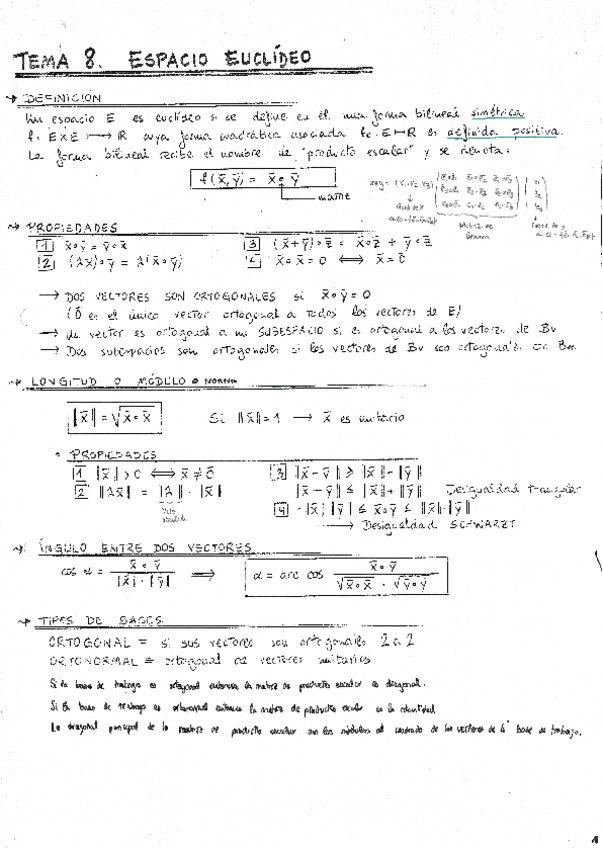 TEMA 8. ESPACIO EUCLÍDEO
→ DEFINICIÓN
Un espacio E es euclídeo si se define en él una forma bilineal simétrica
f: E×E → R cuya forma cuadrática asociada fc: E→R es definida positiva.
La forma bilineal recibe el nombre de "producto escalar" y se denota:
f(x̄,ȳ) = x̄∘ȳ
matriz
→ PROPIEDADES
1 x̄∘ȳ = ȳ∘x̄
3 (x̄+ȳ)∘z̄ = x̄∘z̄ + ȳ∘z̄
2 (λx̄)∘ȳ = λ(x̄∘ȳ)
4 x̄∘x̄ = 0 ⟺ x̄ = 0̄
→ DOS VECTORES SON ORTOGONALES si x̄∘ȳ = 0
(0̄ es el único vector ortogonal a todos los vectores de E)
→ Un vector es ortogonal a un SUBESPACIO si es ortogonal a los vectores de Bv
→ Dos subespacios son ortogonales si los vectores de Bv son ortogonales
→ LONGITUD O MÓDULO o NORMA
|x̄| = √x̄∘x̄ Si ‖x̄‖=1 → x̄ es unitario
• PROPIEDADES
1 |x̄| > 0 ⟺ x̄ ≠ 0̄
3 |x̄-ȳ| ≥ |x̄|-|ȳ|
2 ‖λx̄‖ = |λ|·|x̄|
|x̄-ȳ| ≤ |x̄|+|ȳ| Desigualdad triangular
Valor absoluto
4 -|x̄||ȳ| ≤ x̄∘ȳ ≤ |x̄|·|ȳ|
→ Desigualdad SCHWARZT
→ ÁNGULO ENTRE DOS VECTORES
cos α = x̄∘ȳ / |x̄|·|ȳ| ⟹ α = arc cos x̄∘ȳ / √x̄∘x̄ · √ȳ∘ȳ
→ TIPOS DE BASES
ORTOGONAL = si sus vectores son ortogonales 2 a 2
ORTONORMAL = ortogonal de vectores unitarios
Si la base de trabajo es ortogonal entonces la matriz de producto escalar es diagonal.
Si la base de trabajo es ortonormal entonces la matriz de producto escalar es la identidad
La diagonal principal de la matriz de producto escalar son los módulos al cuadrado de los vectores de la base de trabajo.
1